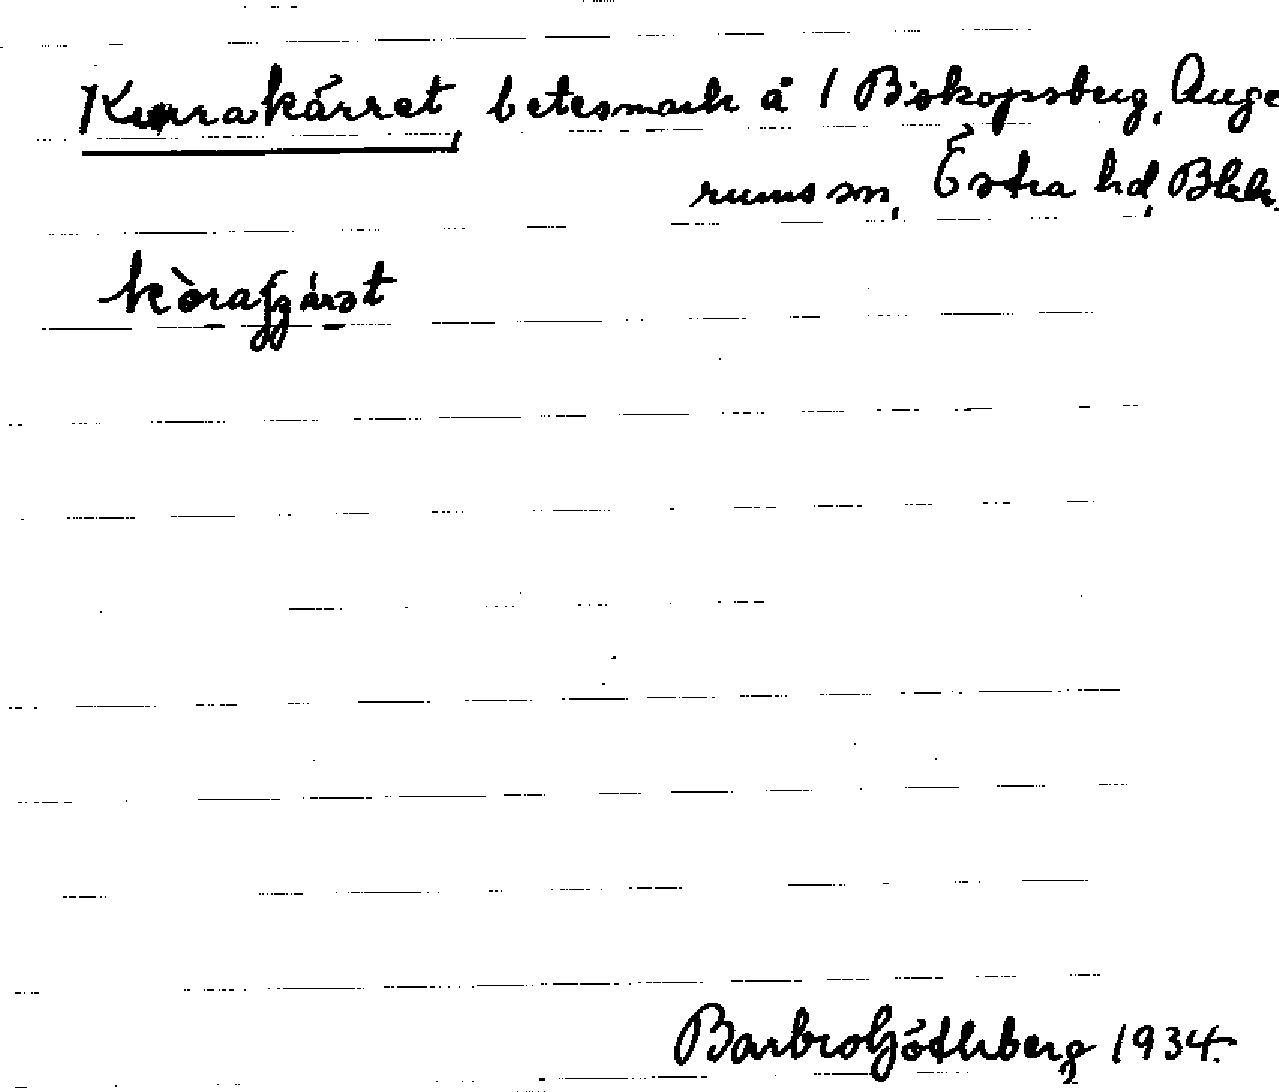 Kurrakärret, betesmark å 1 Biskopsberg, Auge
rums sn, Östra hd, Blek.
Barbro Götherberg 1934.